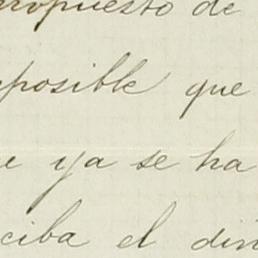 propuesto de
posible que
e ya se ha
ciba el din